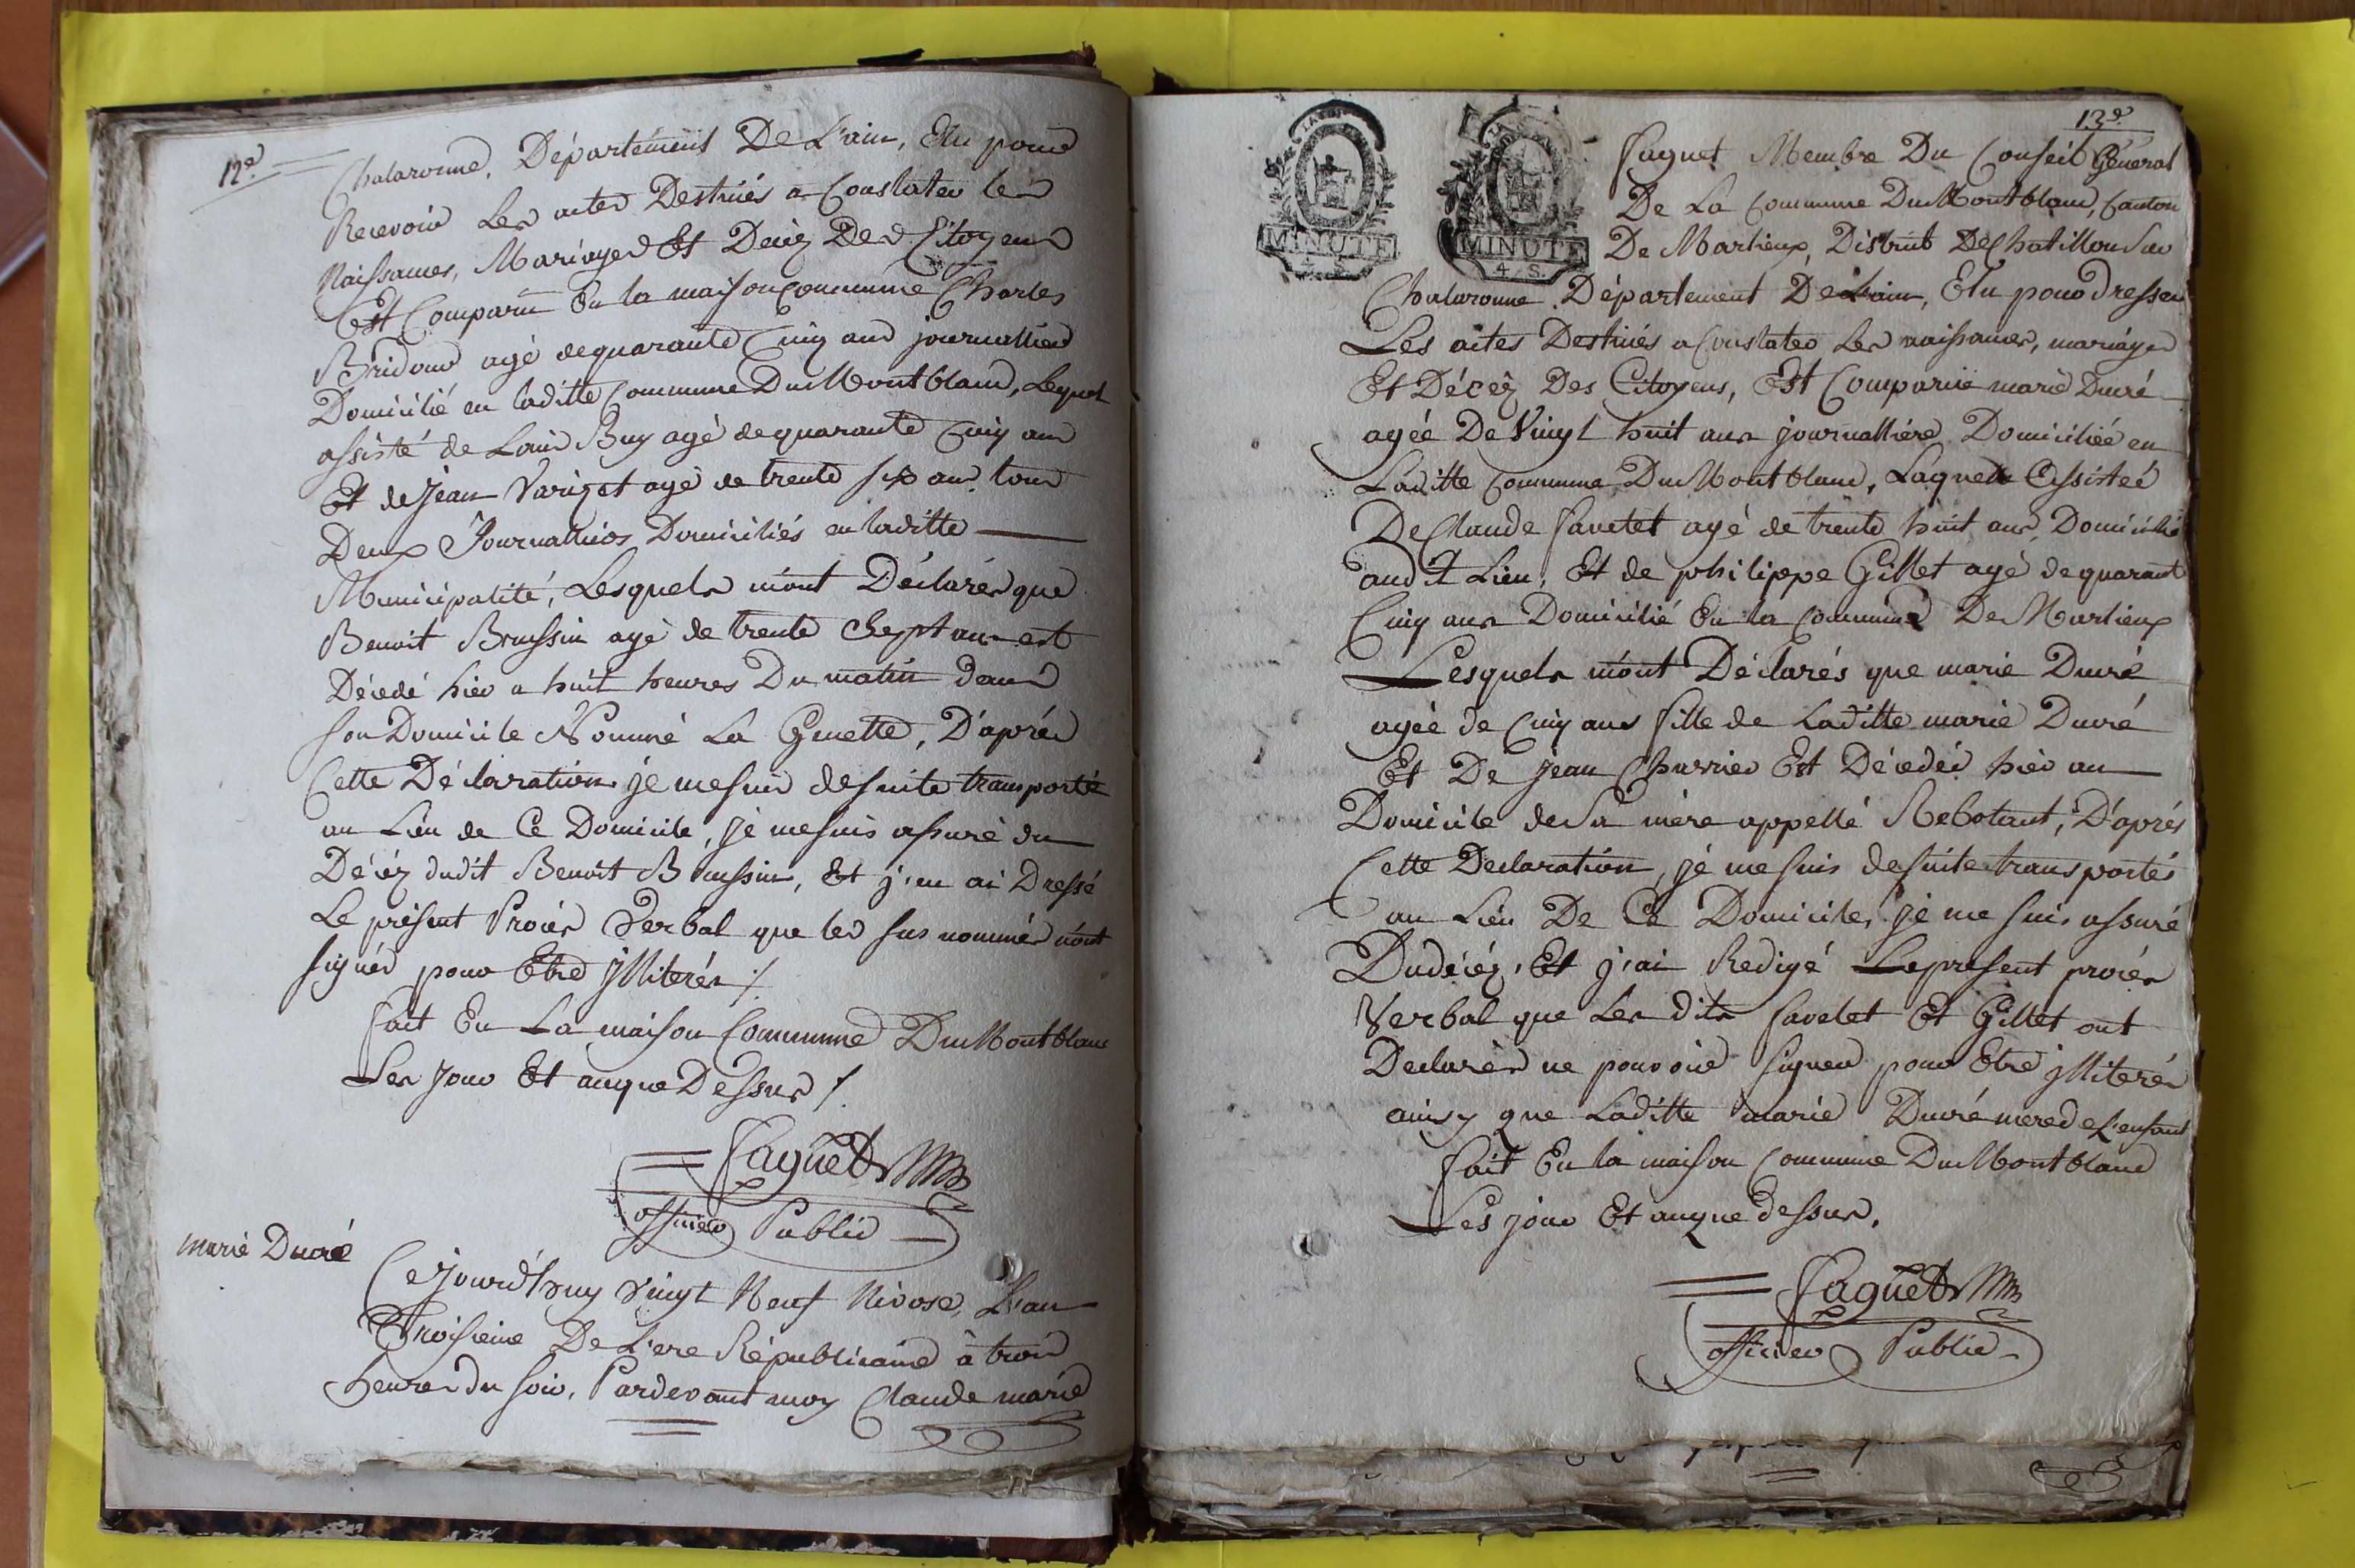 12e
Chalaronne, Département De L'ain, Elu pour
Recevoir Les actes Destinés a Constater les
Naissances, Mariages Et Décéz Des Citoyens
Est Comparu En la maison commune Charles
Bridour agé de quarante Cinq ans journallier
Domicilié en laditte Commune Du Montblanc, Lequel
assisté de Louis Buy agé de quarante Cinq ans
Et de Jean Varizet agé de trente six ans tous
Deux Journalliers Domiciliés en laditte
Municipalité, Lesquels m'ont Déclarés que
Benoit Brussin agé de trente Chept ans est
Décedé hier a huit heures Du matin dans
son Domicile Nommé La Genette, D'après
Cette Déclaration je me suis de suite transporté
au Lieu de Ce Domicile, je me suis assuré du
Décéz dudit Benoit Brussin, Et j'en ai Dressé
Le présent Procès Verbal que les sus nommés n'ont
signés pour Etre jlliterés /.
fait En La maison Commune Du Montblanc
Les Jour Et an que Dessus /.
Faguet
officier Public
marie Ducré
Cejourd'huy Vingt Neuf Nivose, L'an
Troisieme De L'ere Républicaine à trois
heures du soir, Pardevant moy Claude marie
13e
LA LOI
LA LOI
MINUTE
4 S.
MINUTE
4 S.
faguet Membre Du Conseil Général
De La Commune Du Montblanc, Canton
De Marlieux, District De Chatillon Sur
Chalaronne Département De L'ain, Elu pour Dresser
Les actes Destinés a Constater Les naissances, mariages
Et Décéz Des Citoyens, Est Comparüe marie Ducré
agée De Vingt huit ans journallière Domiciliée en
Laditte Commune Du Montblanc, Laquelle Assistée
De Claude Favelet agé de trente huit ans, Domicilié
audit Lieu, Et de philippe Gillet agé de quarante
Cinq ans Domicilié En la Commune De Marlieux
Lesquels m'ont Déclarés que marie Ducré
agée de Cinq ans fille de Laditte marie Ducré
Et De Jean Charrier Est Décedée hier au
Domicile de Sa mère appellé Rebotant, D'après
Cette Declaration, je me suis de suite transportés
au Lieu De Ce Domicile, je me suis assuré
Du décéz, Et j'ai Redigé Le present procès
Verbal que Les dits favelet Et Gillet ont
Declarés ne pouvoir signer pour Etre jlliterés
ainsy que Laditte marie Ducré mere de L'enfant
fait En la maison Commune Du Montblanc
Les jour Et an que dessus.
Faguet
officier Public